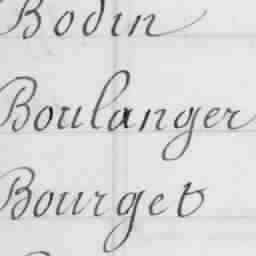 Bodin
Boulanger
Bourget